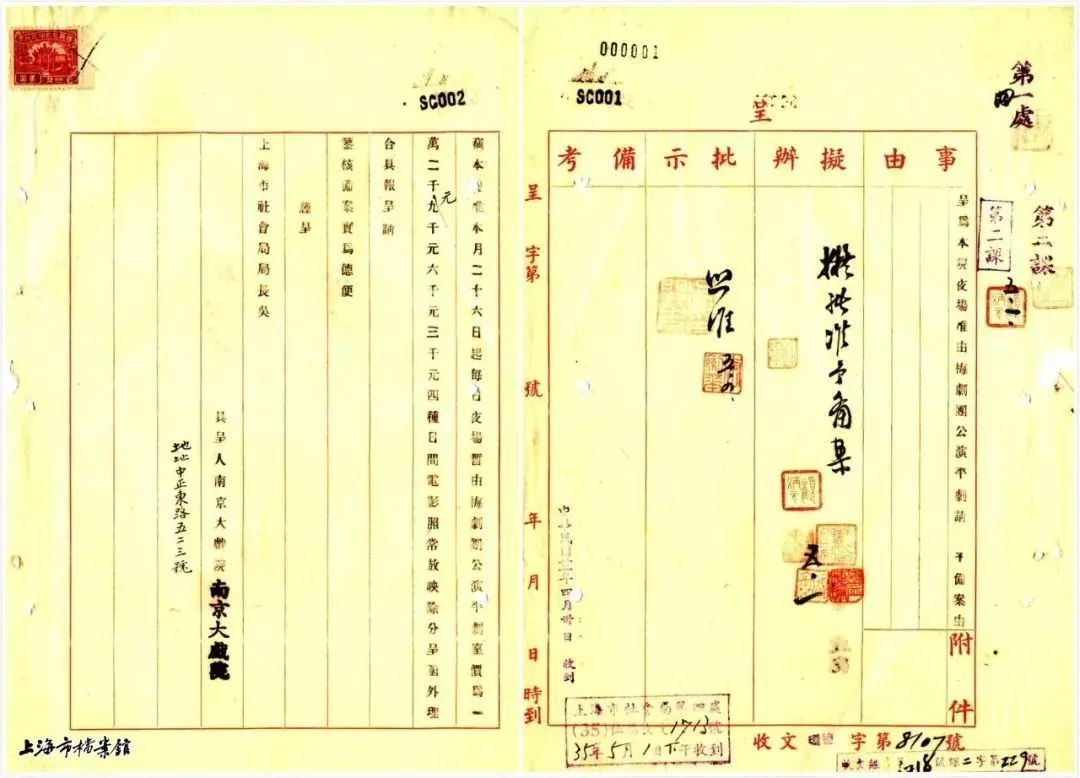 000001
SC001
呈
第四一處
第二課
第二課
五.一.
事由
擬辦
批示
備考
呈為本院夜場准由梅劇團公演平劇請 予備案由
附件
擬批准予備案
五.一
照准
五.四.
中華民國三十五年四月卅日 收到
呈 字第 號 年 月 日 時到
上海市社會局第四處
(35) 1713號
35年5月1日下午收到
收文 字第8107號
字第229號
SC002
竊本院准本月二十六日起每日夜場暫由梅劇團公演平劇座價為一
萬二千元九千元六千元三千元四種日間電影照常放映除分呈外理
合具報呈請
鑒核備案實為德便
謹呈
上海市社會局局長吳
具呈人南京大戲院 南京大戲院
地址中正東路五二三號
上海市檔案館